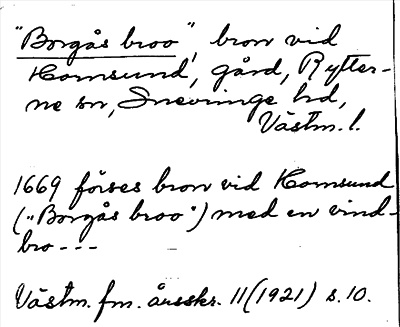 "Borgås broo", bron vid
Komsund, gård, Rytter-
ne sn, Snevringe hd,
Västm. l.
1669 förses bron vid Komsund
("Borgås broo") med en vind-
bro ---
Västm. fm. årsskr. 11 (1921) s. 10.